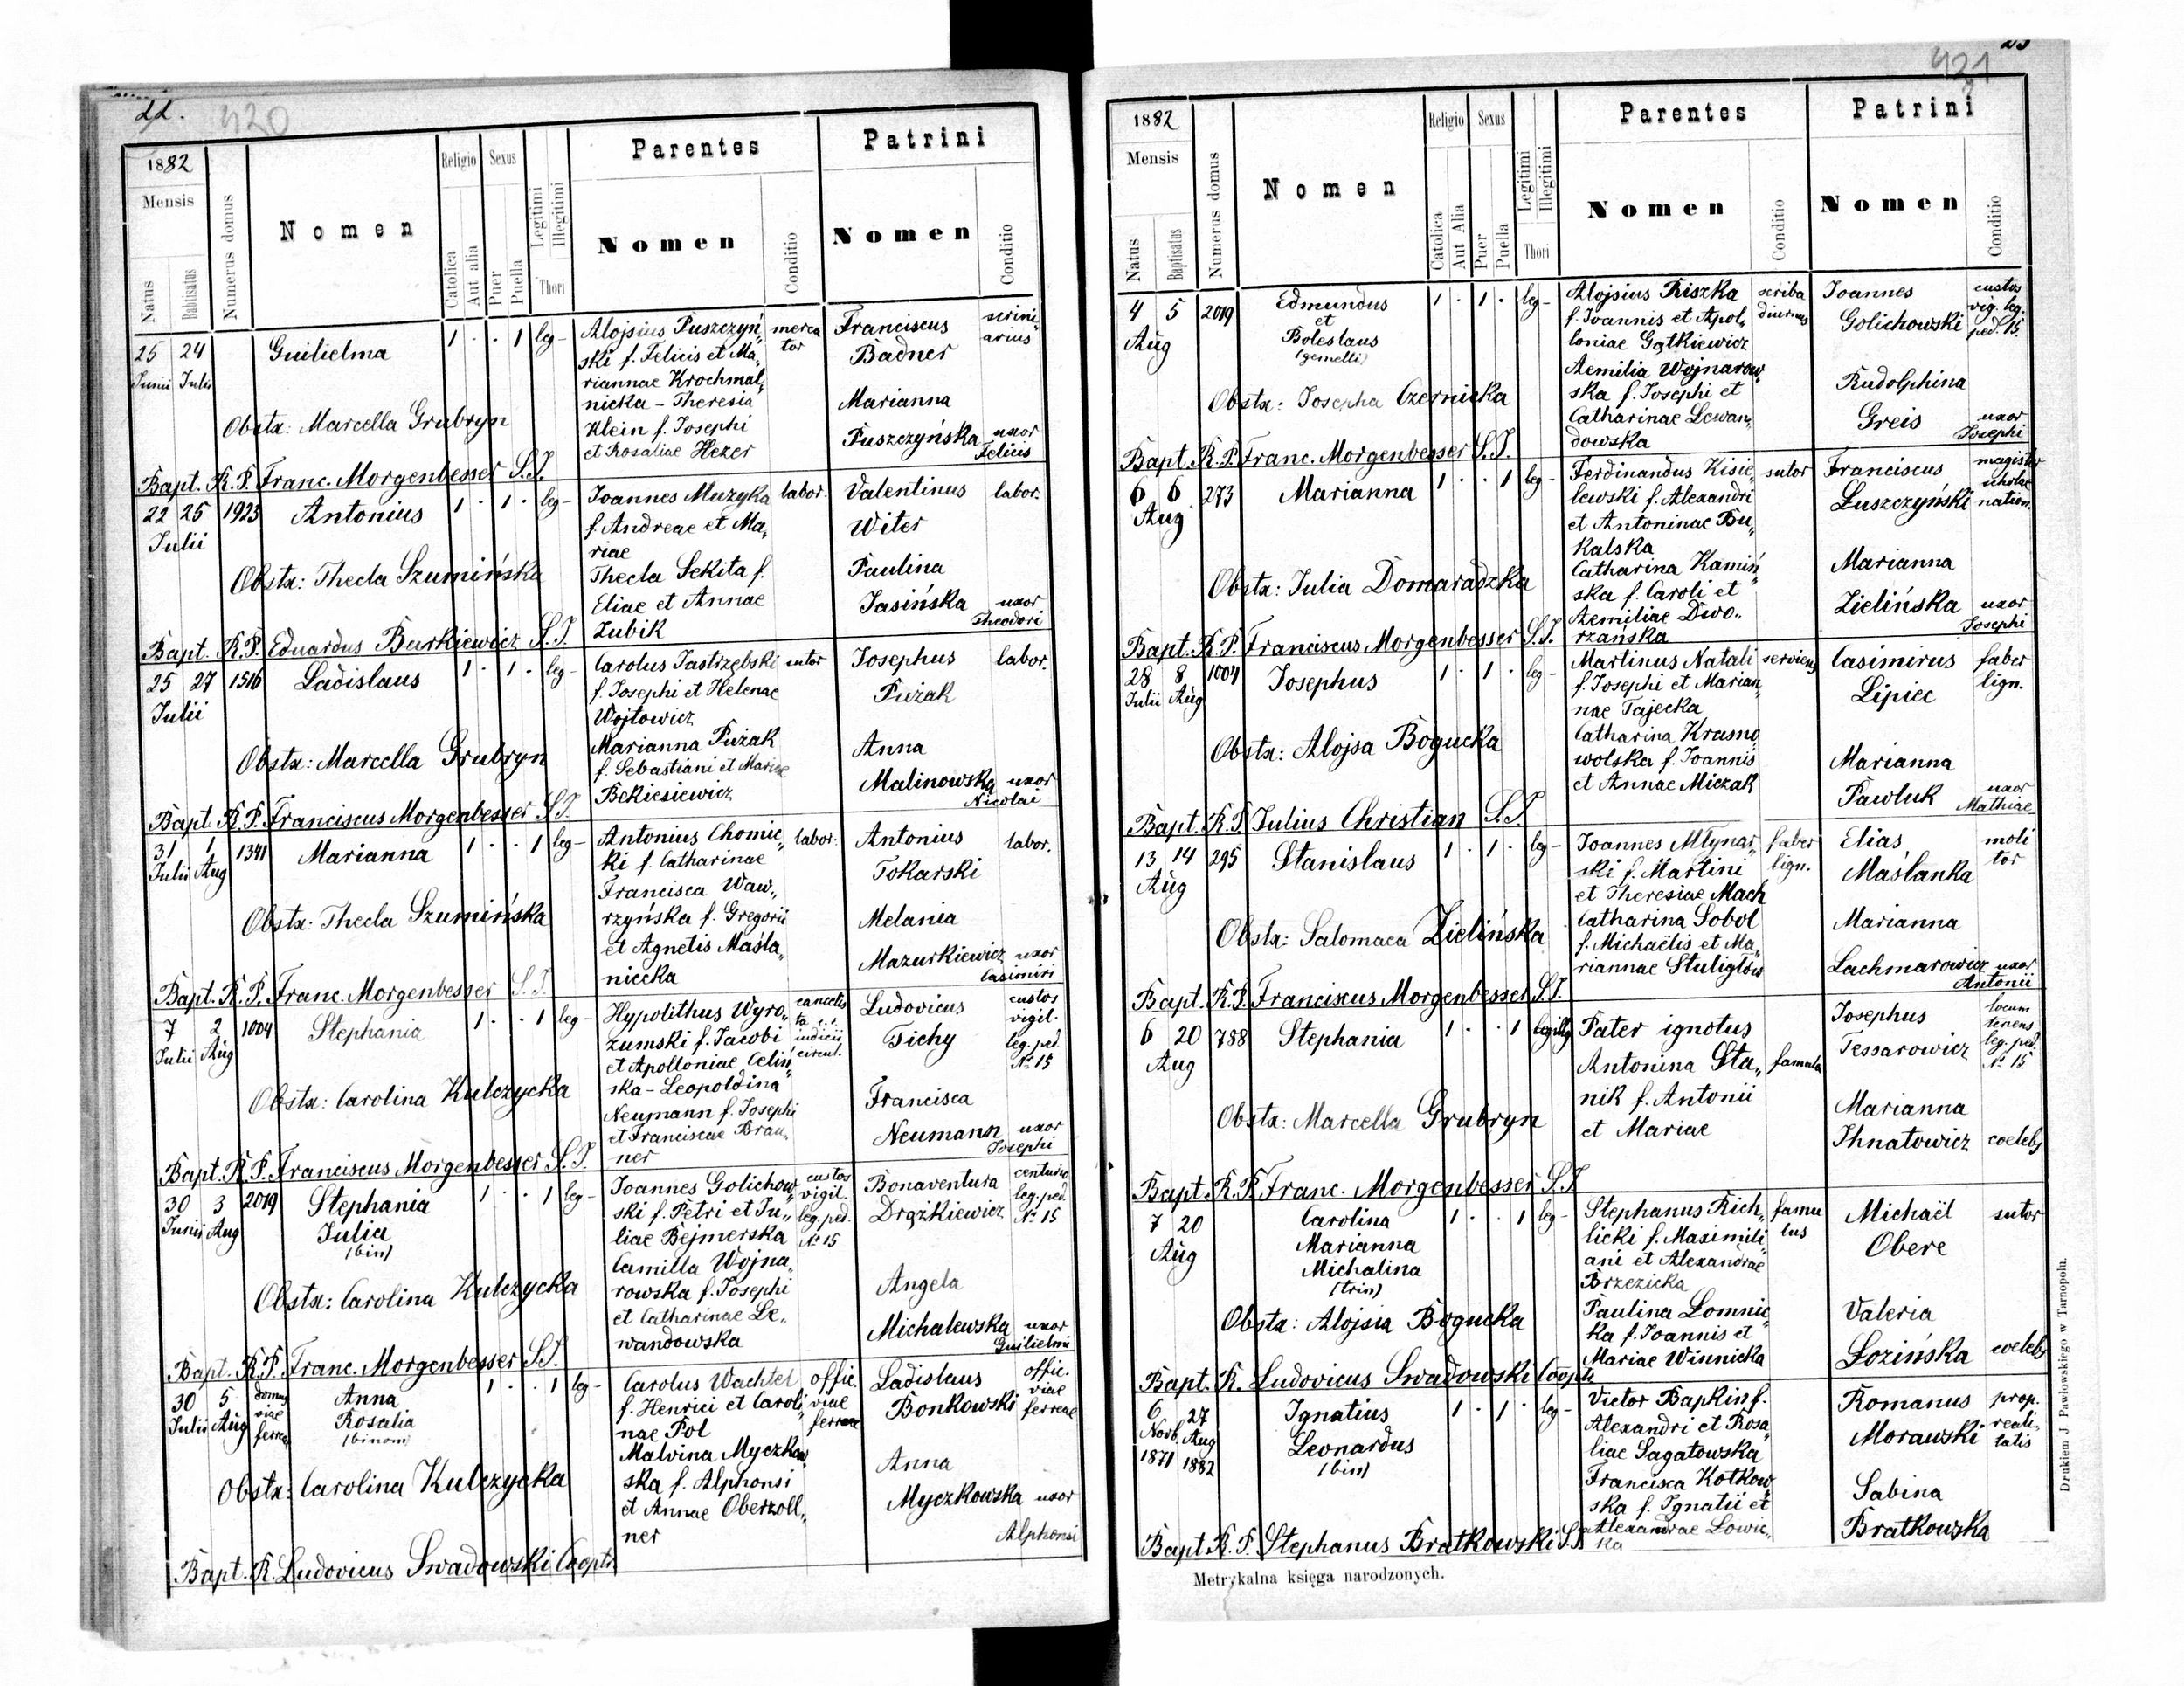 22.
420
1882
Mensis
Natus
Babtisatus
Numerus domus
Nomen
Religio
Catolica
Aut alia
Sexus
Puer
Puella
Legitimi
Illegitimi
Thori
Parentes
Nomen
Conditio
Patrini
Nomen
Conditio
25 24 Guilielma 1 . . 1 leg- Alojsius Puszczyń„ merca Franciscus scrini„
Junii Julii ski f. Felicis et Ma„ tor Badner arius
riannae Krochmal„
nicka - Theresia Marianna
Obstx: Marcella Grubryn Klein f. Josephi Puszczyńska uxor
et Rosaliae Hezer Felicis
Bapt. R. P. Franc. Morgenbesser S.J.
22 25 1923 Antonius 1 . 1 . leg- Joannes Muzyka labor. Valentinus labor.
Julii f. Andreae et Ma„ Witer
riae
Obstx: Thecla Szumińska Thecla Sekita f. Paulina
Eliae et Annae Jasińska uxor
Zubik Theodori
Bapt. R. P. Eduardus Burkiewicz S.J.
25 27 1516 Ladislaus 1 . 1 . leg- Carolus Jastrzębski sutor Josephus labor.
Julii f. Josephi et Helenae Pużak
Wojtowicz
Marianna Pużak Anna
Obstx: Marcella Grubryn f. Sebastiani et Mariae Malinowska uxor
Bekiesiewicz Nicolai
Bapt. R. P. Franciscus Morgenbesser S.J.
31 1 1341 Marianna 1 . . 1 leg- Antonius Chomic„ labor. Antonius labor.
Julii Aug ki f. Catharinae Tokarski
Francisca Waw„
Obstx: Thecla Szumińska rzyńska f. Gregorii Melania
et Agnetis Maśla„ Mazurkiewicz uxor
niecka Casimiri
Bapt. R. P. Franc. Morgenbesser S.J.
7 2 1004 Stephania 1 . . 1 leg- Hypolithus Wyro„ cancelis Ludovicus custos
Julii Aug zumski f. Jacobi ta c.r. Tichy vigil.
et Apolloniae Celiń„ iudicii leg. ped.
ska - Leopoldina circul. № 15
Obstx: Carolina Kulczycka Neumann f. Josephi Francisca
et Franciscae Brau„ Neumann uxor
ner Josephi
Bapt. R. P. Franciscus Morgenbesser S.J.
30 3 2019 Stephania 1 . . 1 leg- Joannes Golichow„ custos Bonaventura centurio
Junii Aug Julia ski f. Petri et Ju„ vigil. Drążkiewicz leg. ped.
(bin) liae Bejmerska leg. ped. № 15
Camilla Wojna„ № 15
Obstx: Carolina Kulczycka rowska f. Josephi Angela
et Catharinae Le„ Michalewska uxor
wandowska Guilielmi
Bapt. R. P. Franc. Morgenbesser S.J.
30 5 domus Anna 1 . . 1 leg- Carolus Wachtel offic. Ladislaus offic.
Julii Aug viae Rosalia f. Henrici et Caroli„ viae Bonkowski viae
ferreae (binom) nae Pol ferreae ferreae
Malvina Myczkow„
Obstx: Carolina Kulczycka ska f. Alphonsi Anna
et Annae Oberzoll„ Myczkowska uxor
ner Alphonsi
Bapt. R. Ludovicus Swadowski Coopts
23
421
1882
Mensis
Natus
Baptisatus
Numerus domus
Nomen
Religio
Catolica
Aut Alia
Sexus
Puer
Puella
Legitimi
Illegitimi
Thori
Parentes
Nomen
Conditio
Patrini
Nomen
Conditio
4 5 2019 Edmundus 1 . 1 . leg- Alojsius Riszka scriba Joannes custos
Aug et f. Joannis et Apol„ diurnus Golichowski vig. leg.
Boleslaus loniae Gątkiewicz ped. 15
(gemelli) Aemilia Wojnarow„
Obstx: Josepha Czernicka ska f. Josephi et Rudolphina
Catharinae Lewan„ Greis uxor
dowska Josephi
Bapt. R. P. Franc. Morgenbesser S.J.
6 6 273 Marianna 1 . . 1 leg- Ferdinandus Kisie„ sutor Franciscus magister
Aug lewski f. Alexandri Łuszczyński scholae
et Antoninae Bu„ natum.
kalska
Obstx: Julia Domaradzka Catharina Kamiń„ Marianna
ska f. Caroli et Zielińska uxor
Aemiliae Dwo„ Josephi
rzańska
Bapt. R. P. Franciscus Morgenbesser S.J.
28 8 1004 Josephus 1 . 1 . leg- Martinus Natali serviens Casimirus faber
Julii Aug f. Josephi et Marian„ Lipiec lign.
nae Tajecka
Obstx: Alojsa Bogucka Catharina Krasno„
wolska f. Joannis Marianna
et Annae Miczak Pawluk uxor
Mathiae
Bapt. R. P. Julius Christian S.J.
13 14 295 Stanislaus 1 . 1 . leg- Joannes Młynar„ faber Elias moli
Aug ski f. Martini lign. Maślanka tor
et Theresiae Mach
Obstx: Salomaea Zielińska Catharina Sobol Marianna
f. Michaëlis et Ma„ Lachmarowicz uxor
riannae Stuligłów Antonii
Bapt. R. P. Franciscus Morgenbesser S.J.
6 20 788 Stephania 1 . . 1 illeg Pater ignotus Josephus locum
Aug Antonina Sta„ famula Tessarowicz tenens
nik f. Antonii leg. ped.
et Mariae № 15
Obstx: Marcella Grubryn Marianna
Ihnatowicz coelebs
Bapt. R. P. Franc. Morgenbesser S.J.
7 20 Carolina 1 . . 1 leg- Stephanus Rich„ famu Michaël sutor
Aug Marianna licki f. Maximili„ lus Obere
Michalina ani et Alexandrae
(trin) Brzezicka
Obstx: Alojsia Bogucka Paulina Lomnic„ Valeria
ka f. Joannis et Łozińska coelebs
Mariae Winnicka
Bapt. R. Ludovicus Swadowski Coopts
6 27 Ignatius 1 . 1 . leg- Victor Bapkins f. Romanus prop.
Novb. Aug Leonardus Alexandri et Rosa„ Morawski reali„
1871 1882 (bin) liae Sagatowska tatis
Francisca Kotkow„
ska f. Ignatii et Sabina
Alexandrae Lowic„ Bratkowska
ka
Bapt. R. P. Stephanus Bratkowski S.J.
Metrykalna księga narodzonych.
Drukiem J Pawłowskiego w Tarnopolu.